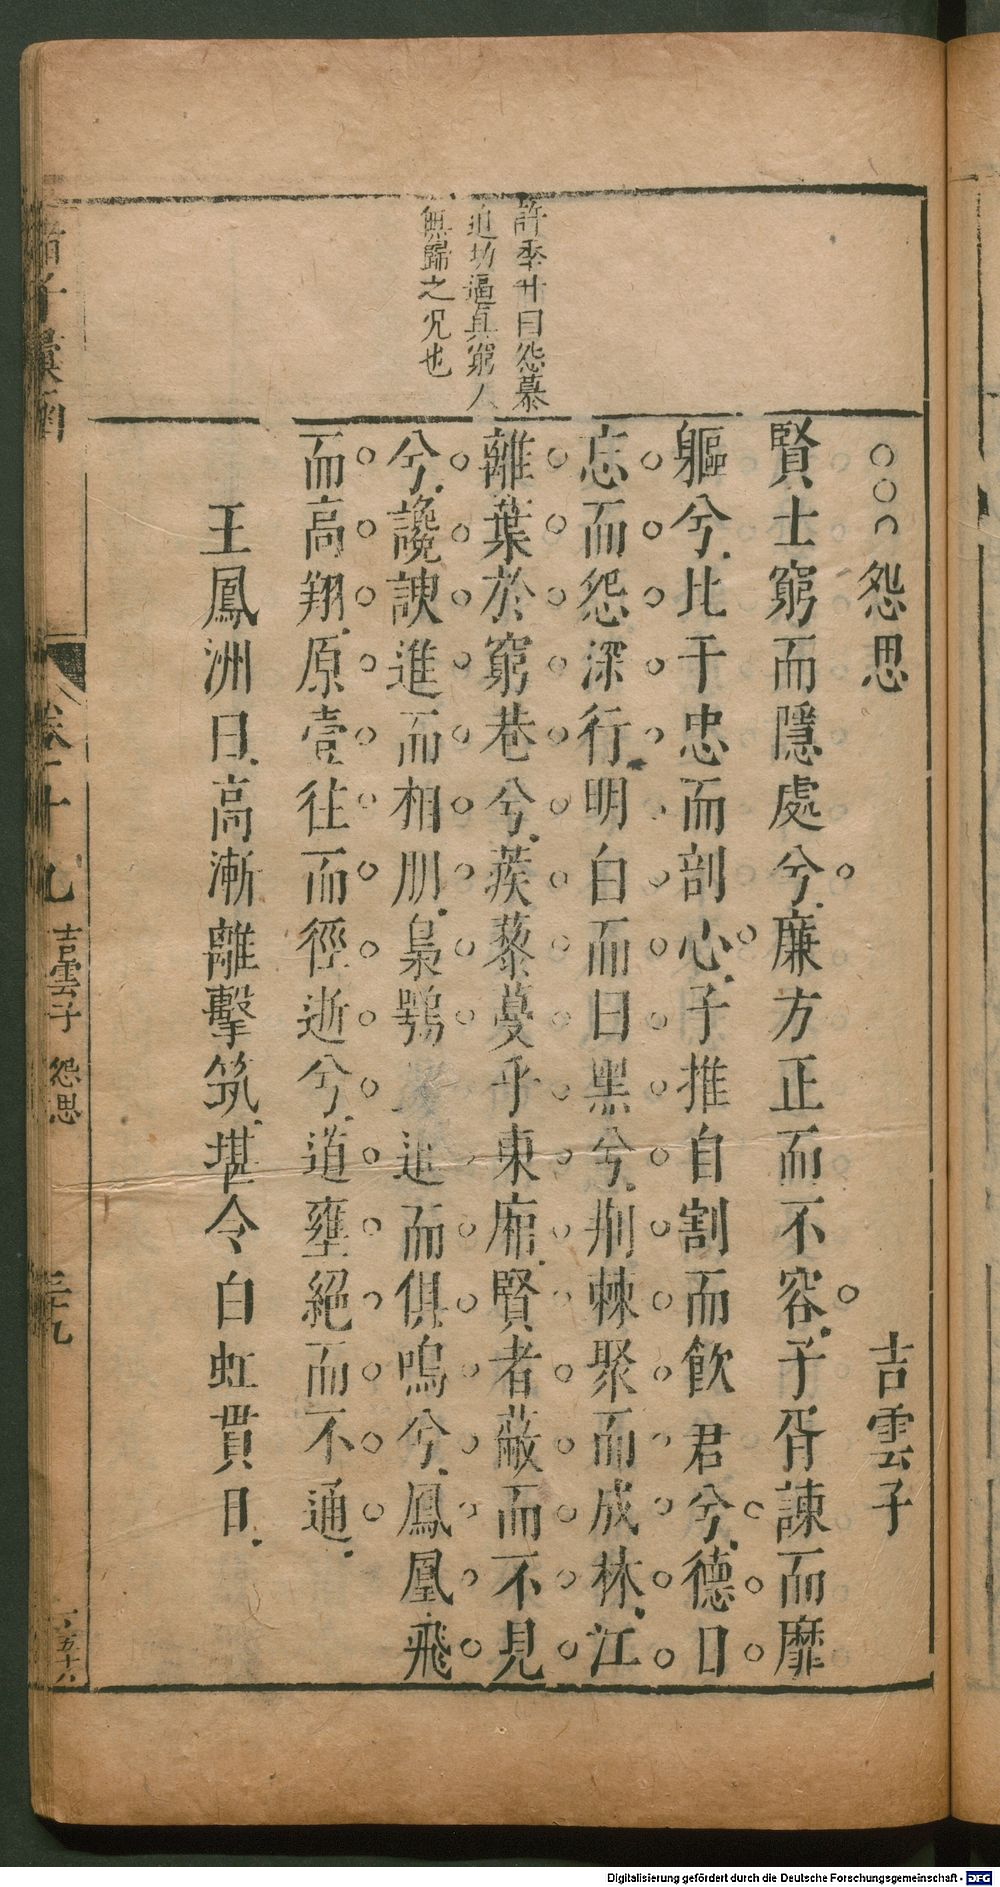 怨思
吉雲子
賢士窮而隱處兮廉方正而不容子胥諫而靡
軀兮比干忠而剖心子推自割而飲君兮德日
忘而怨深行明白而曰黑兮荆棘聚而成林江
離葉於窮巷兮蒺藜蔓乎東廂賢者蔽而不見
兮讒諛進而相朋梟鴞 進而俱鳴兮鳳凰飛
而高翔原壹往而徑逝兮道壅絕而不通
王鳳洲曰高漸離擊筑堪令白虹貫日
許季 曰怨慕
迫切逼真窮人
無歸之况也
諸子彙函
卷十九
吉雲子 怨思
三十九
Digitalisierung gefördert durch die Deutsche Forschungsgemeinschaft - DFG